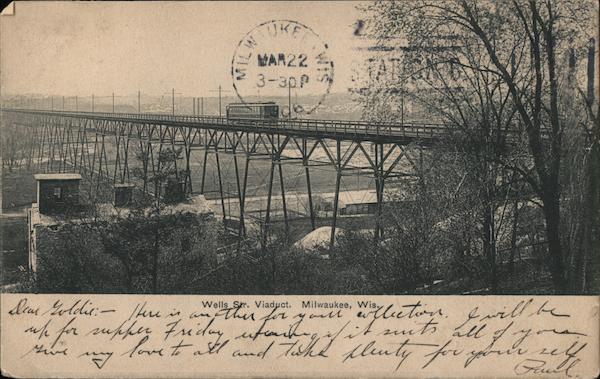 MILWAUKEE, WIS.
MAR 22
3-30 P
06
2
STATION
Wells Str. Viaduct. Milwaukee, Wis.
Dear Goldie:- Here is another for your collection. I will be
up for supper Friday evening if it suits all of you
Give my love to all and take plenty for your self
Paul.